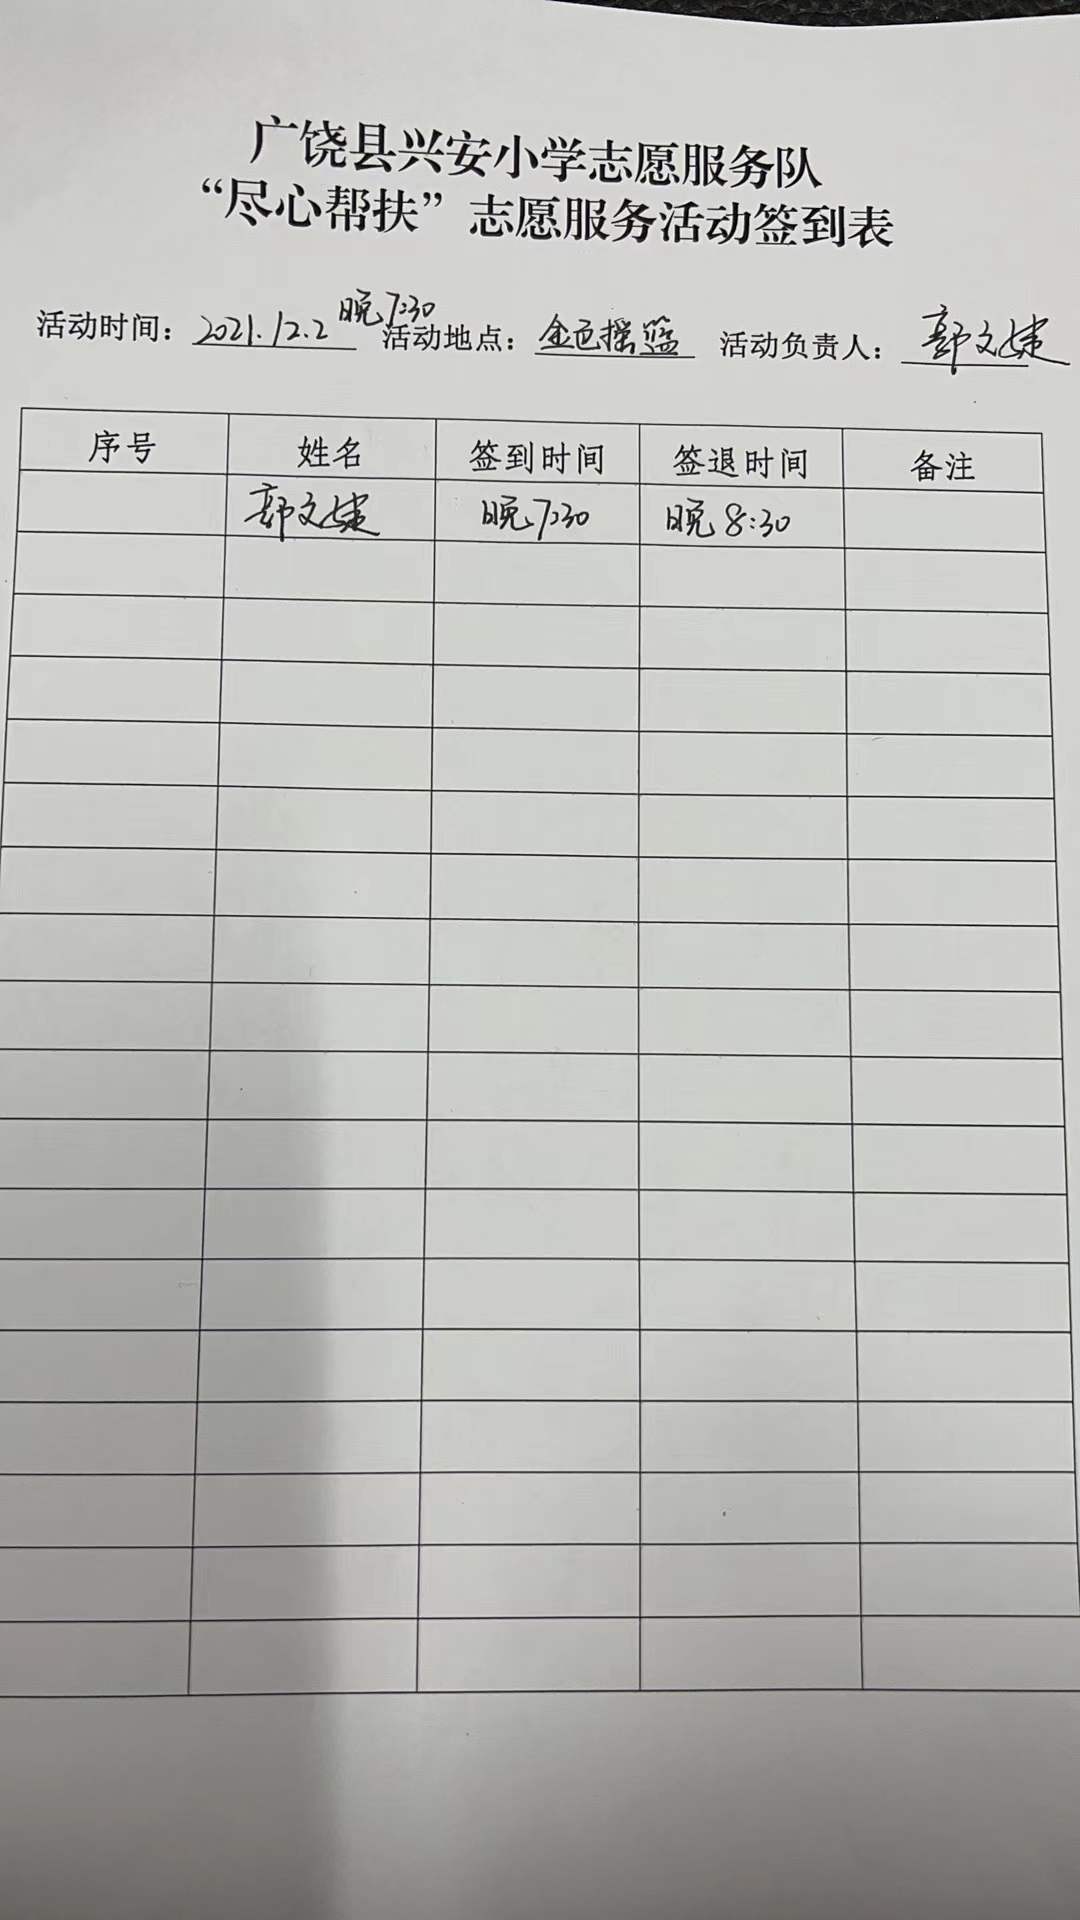 广饶县兴安小学志愿服务队
“尽心帮扶”志愿服务活动签到表
活动时间：2021.12.2 晚7:30 活动地点：金色摇篮 活动负责人：郭文婕
序号 姓名 签到时间 签退时间 备注
郭文婕 晚7:30 晚8:30